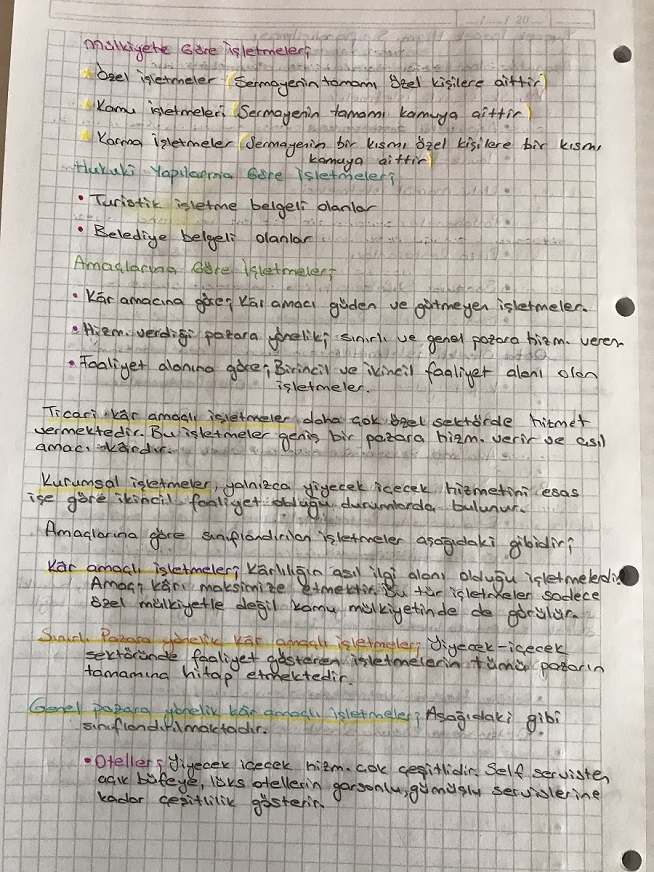 Mülkiyete Göre İşletmeler;
Özel işletmeler (Sermayenin tamamı özel kişilere aittir)
Kamu işletmeleri (Sermayenin tamamı kamuya aittir)
Karma işletmeler (Sermayenin bir kısmı özel kişilere bir kısmı
kamuya aittir)
Hukuki Yapılarına Göre İşletmeler;
• Turistik işletme belgeli olanlar
• Belediye belgeli olanlar
Amaçlarına Göre İşletmeler;
• Kâr amacına göre; Kâr amacı güden ve gütmeyen işletmeler.
• Hizm. verdiği pazara yönelik; sınırlı ve genel pazara hizm. veren
• Faaliyet alanına göre; Birincil ve ikincil faaliyet alanı olan
işletmeler.
Ticari kâr amaçlı işletmeler daha çok özel sektörde hizmet
vermektedir. Bu işletmeler geniş bir pazara hizm. verir ve asıl
amacı kârdır.
Kurumsal işletmeler, yalnızca yiyecek içecek hizmetini esas
işe göre ikincil faaliyet olduğu durumlarda bulunur.
Amaçlarına göre sınıflandırılan işletmeler aşağıdaki gibidir;
Kâr amaçlı işletmeler; Kârlılığın asıl ilgi alanı olduğu işletmeledir
Amaç; kârı maksimize etmektir. Bu tür işletmeler sadece
özel mülkiyetle değil kamu mülkiyetinde de görülür.
Sınırlı Pazara yönelik kâr amaçlı işletmeler; Yiyecek-içecek
sektöründe faaliyet gösteren işletmelerin tümü pazarın
tamamına hitap etmektedir.
Genel pazara yönelik kâr amaçlı işletmeler; Aşağıdaki gibi
sınıflandırılmaktadır.
• Oteller; Yiyecek içecek hizm. çok çeşitlidir. Self servisten
açık büfeye, lüks otellerin garsonlu, gümüşlü servislerine
kadar çeşitlilik gösterir.